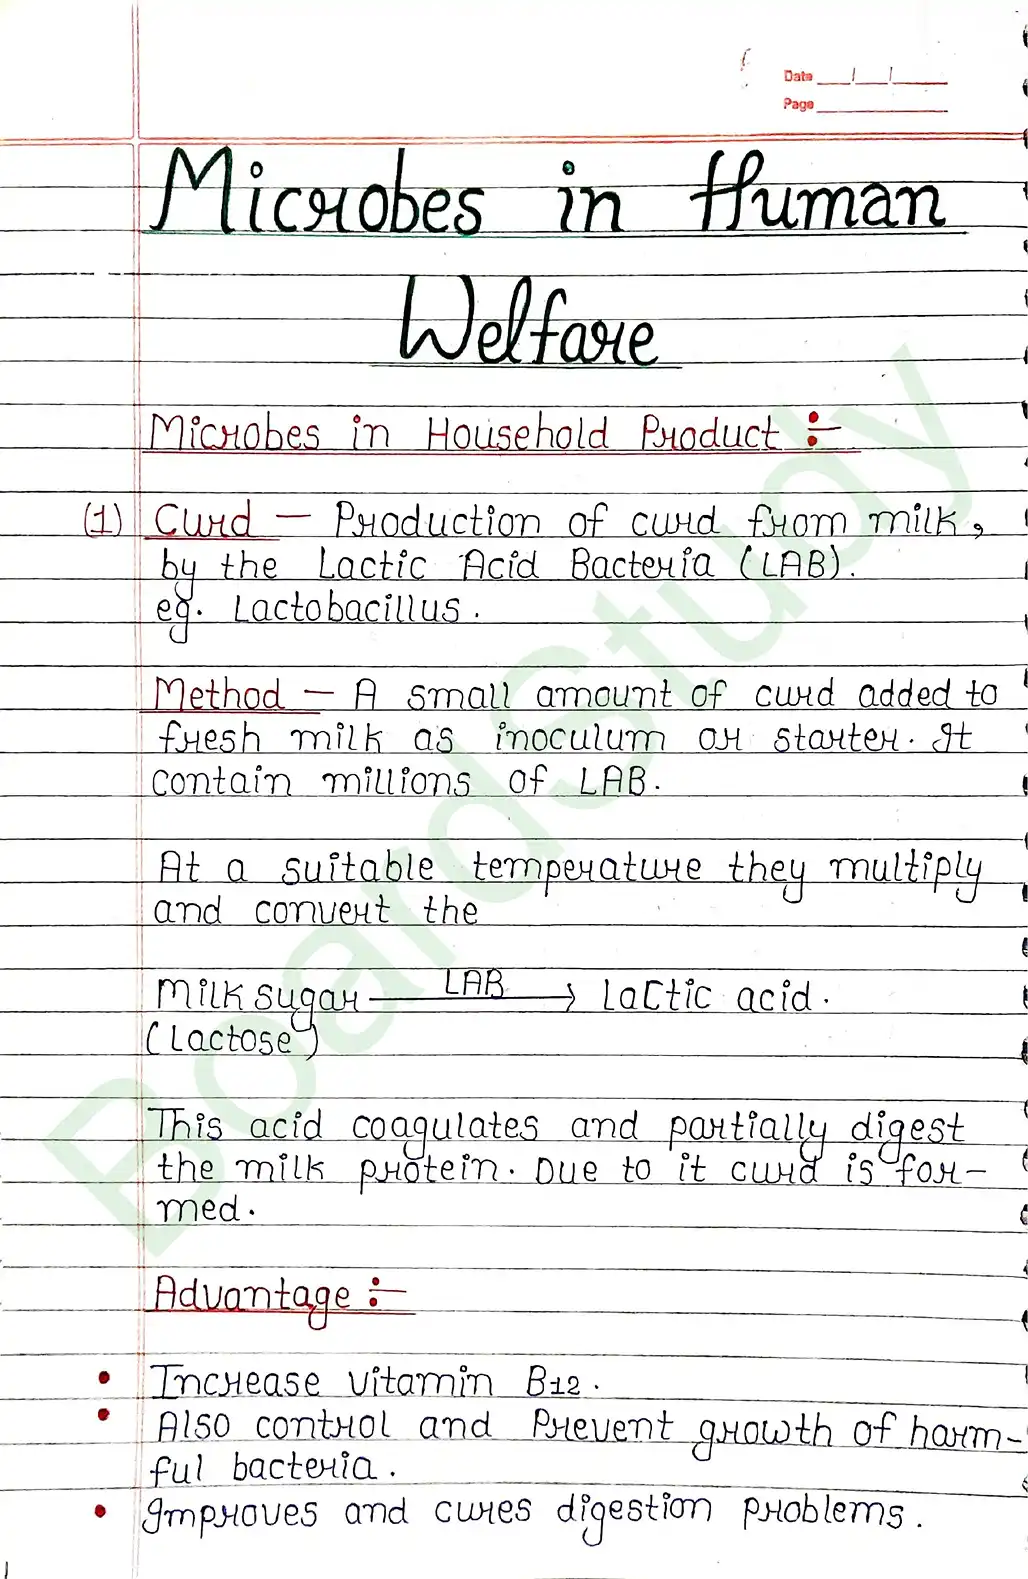 Date __/__/____
Page ________
Microbes in Human
Welfare
Microbes in Household Product :-
(1) Curd — Production of curd from milk,
by the Lactic Acid Bacteria (LAB).
eg. Lactobacillus.
Method — A small amount of curd added to
fresh milk as inoculum or starter. It
contain millions of LAB.
At a suitable temperature they multiply
and convert the
Milk sugar —LAB→ Lactic acid.
(Lactose)
This acid coagulates and partially digest
the milk protein. Due to it curd is for-
med.
Advantage :-
• Increase vitamin B12.
• Also control and Prevent growth of harm-
ful bacteria.
• Improves and cures digestion problems.
BoardStudy